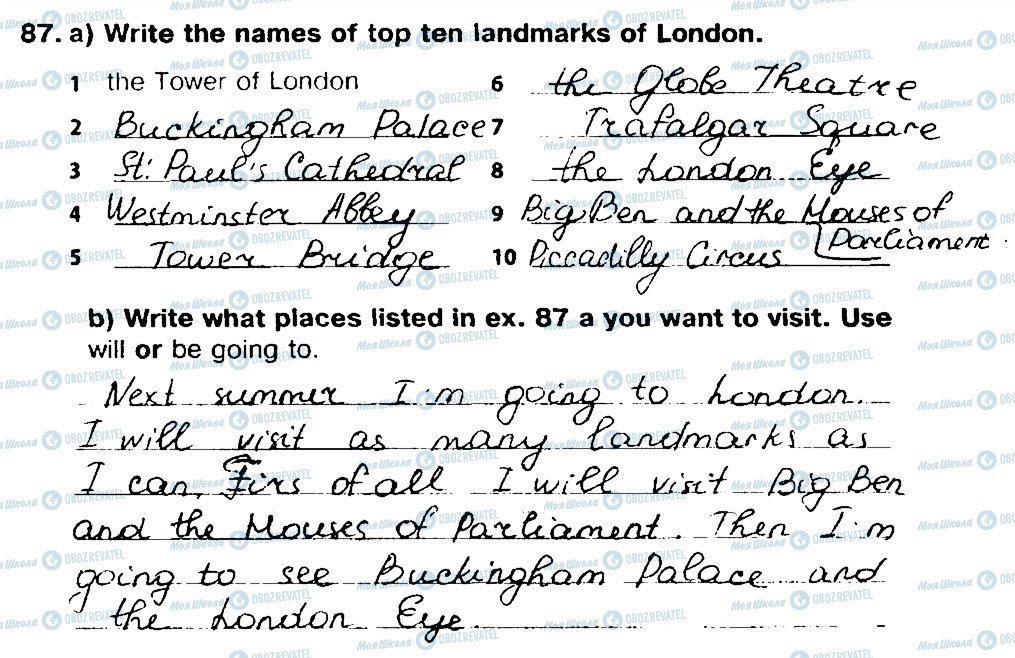 87. a) Write the names of top ten landmarks of London.
1 the Tower of London
2 Buckingham Palace
3 St. Paul's Cathedral
4 Westminster Abbey
5 Tower Bridge
6 the Globe Theatre
7 Trafalgar Square
8 the London Eye
9 Big Ben and the Houses of Parliament
10 Piccadilly Circus
b) Write what places listed in ex. 87 a you want to visit. Use
will or be going to.
Next summer I'm going to London.
I will visit as many landmarks as
I can. Firs of all I will visit Big Ben
and the Houses of Parliament. Then I'm
going to see Buckingham Palace and
the London Eye.
Моя Школа OBOZREVATEL